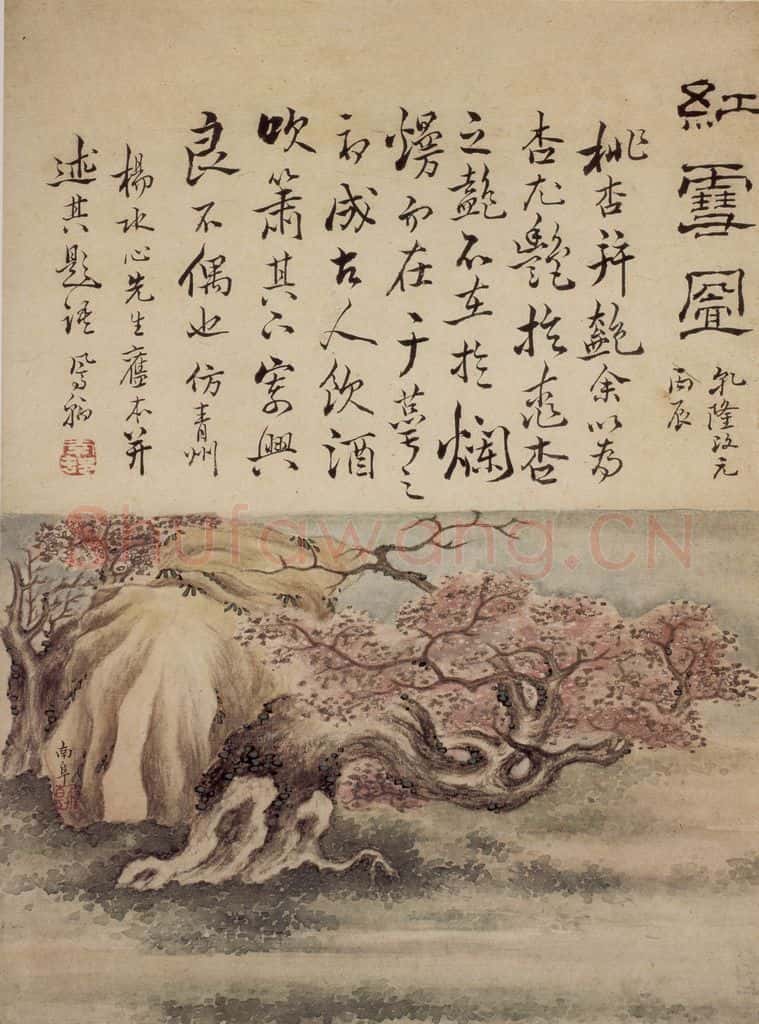 紅雪圖
乾隆改元
丙辰
桃杏并艷余以為
杏尤艷於桃杏
之艷不在於爛
熳而在于萼之
初成古人飲酒
吹簫其下寄興
良不偶也仿青州
楊水心先生舊本并
述其題語 鳳翰
南阜
Shufawang.CN